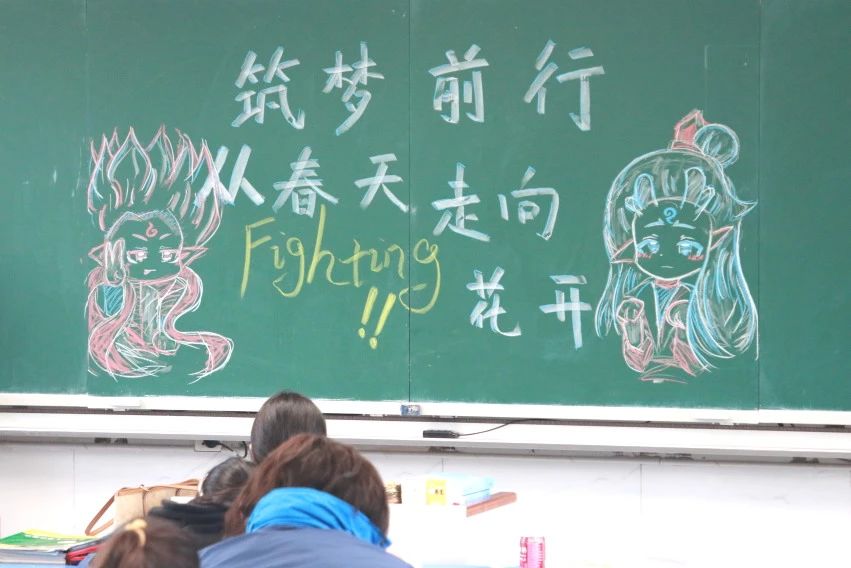 筑梦前行
从春天走向
Fighting
!!
花开